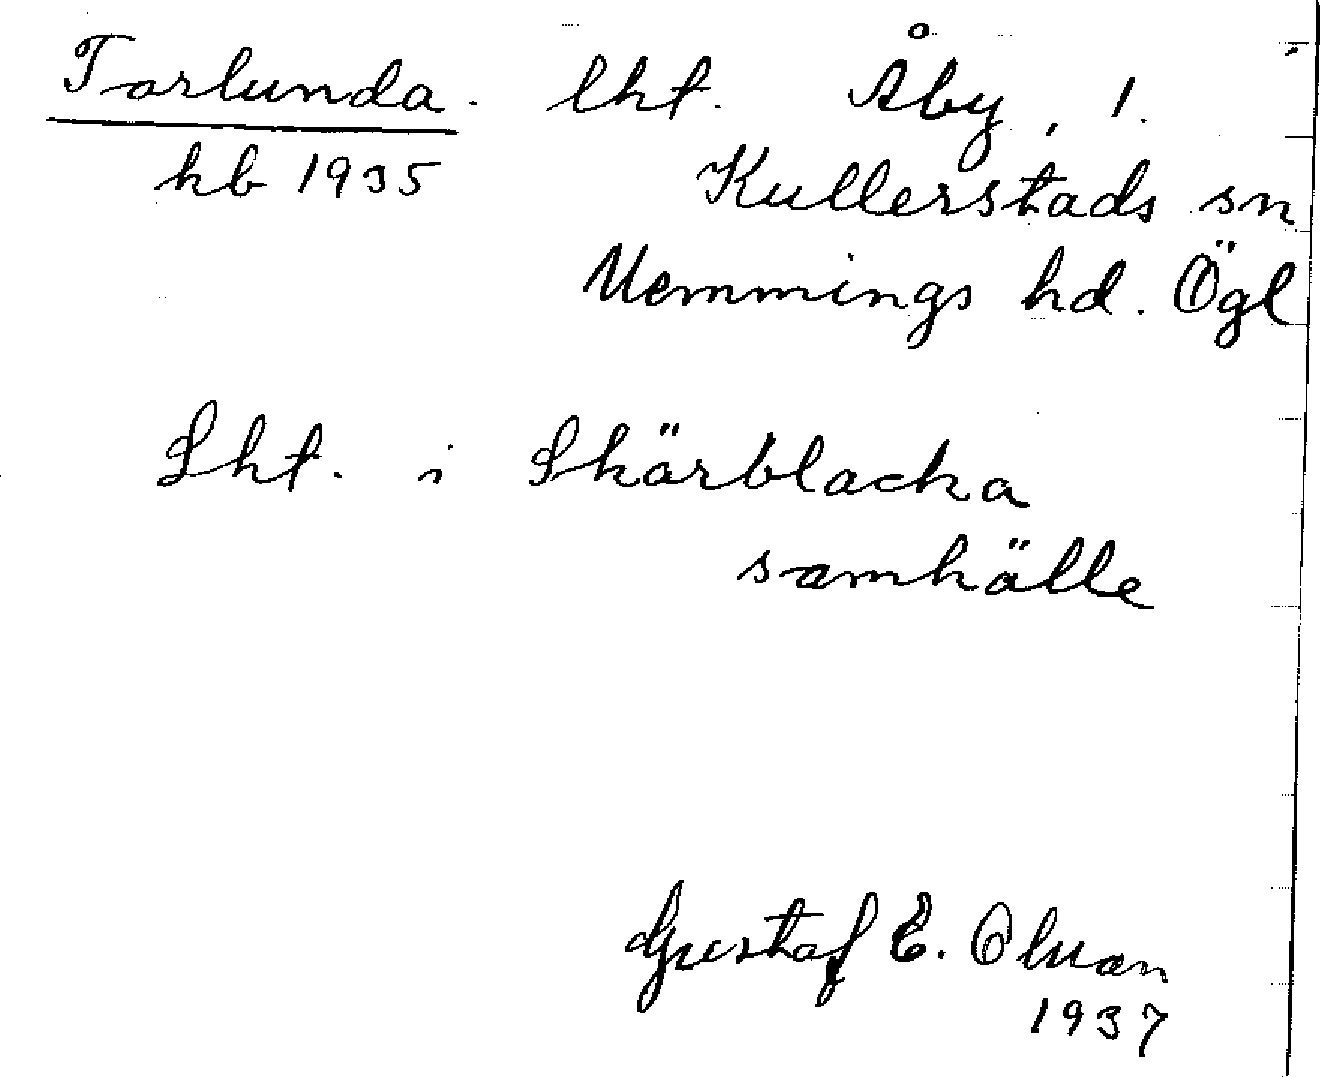 Torlunda. lht. Åby, 1.
kb 1935 Kullerstads sn
Memmings hd. Ögl
Lht. i Skärblacka
samhälle
Gustaf E.
1937